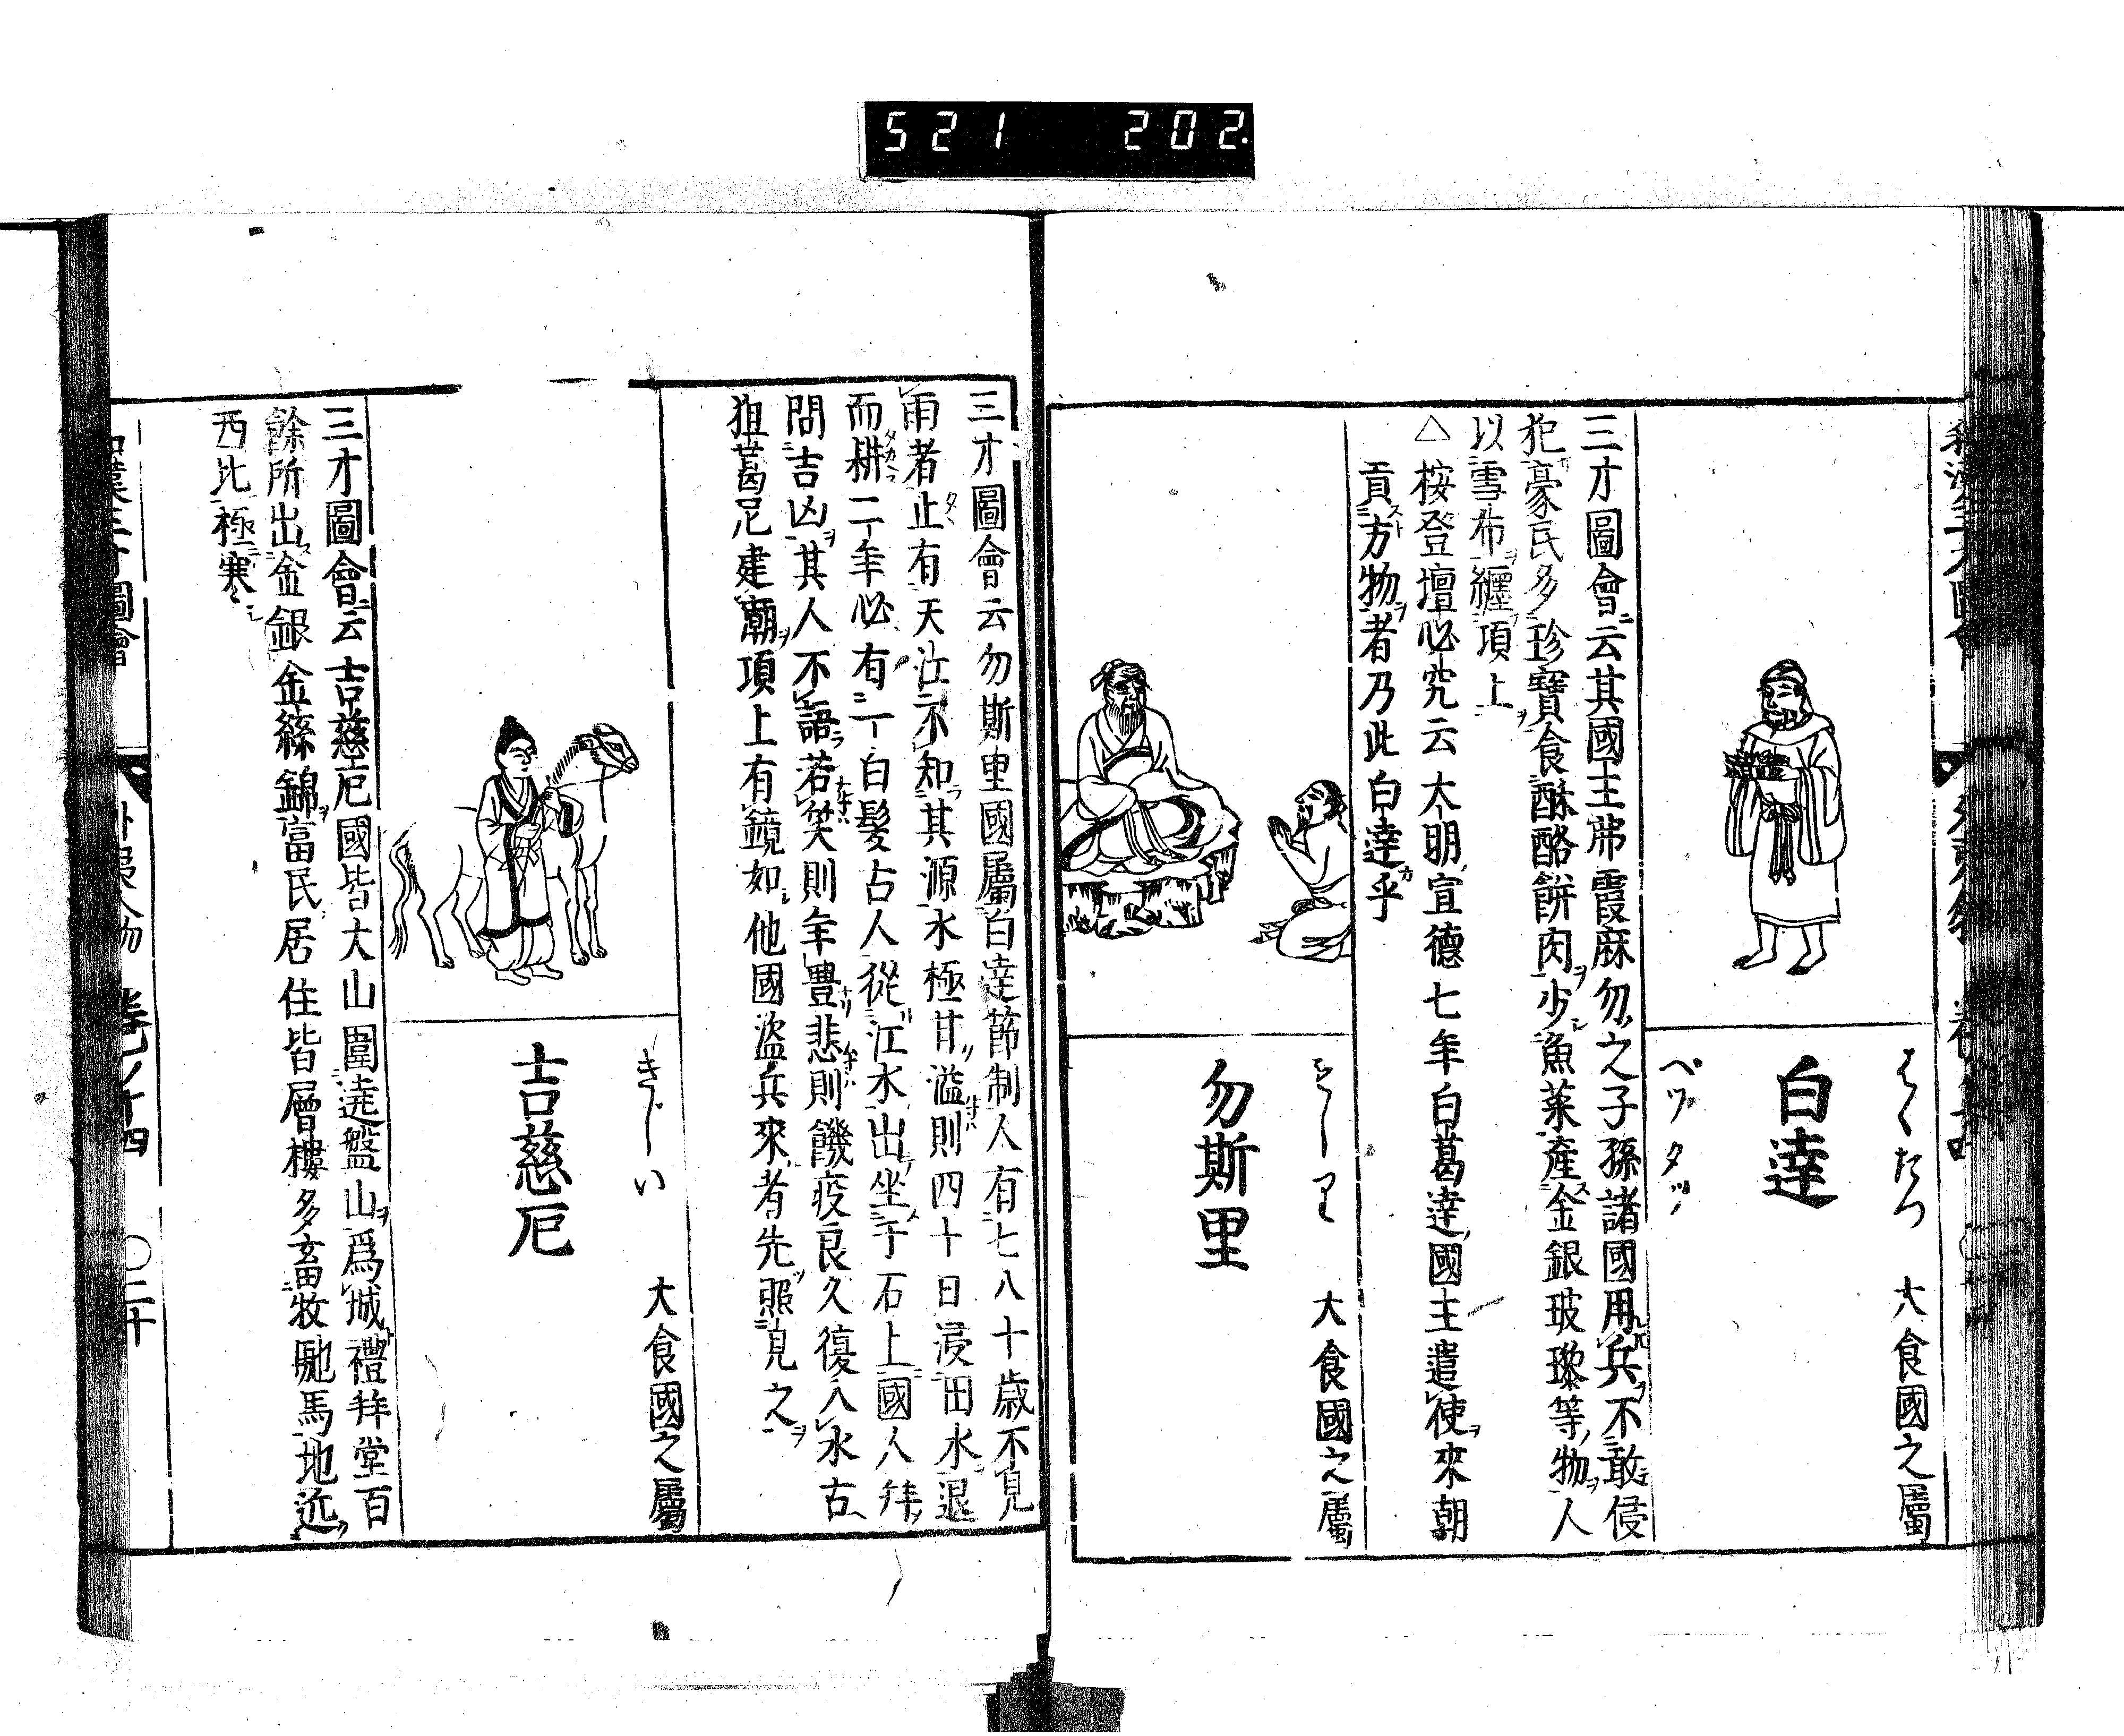 521 202
はくたつ 大食國之屬
白達
ペツタツ
三才圖會云其國主弗霞麻勿之子孫諸國用兵不敢侵
犯豪民多珍寶食酥酪餅肉少魚菜產金銀玻瓈等物人
以雪布纏項上
△按登壇必究云大明宣德七年白葛達國主遣使來朝
貢方物者乃此白達乎
大食國之屬
勿斯里
三才圖會云勿斯里國屬白達節制人有七八十歲不見
雨者止有天江不知其源水極甘溢則四十日浸田水退
而耕二年必有一白髮占人從江水出坐于石上國人拜
問吉凶其人不語若笑則年豊悲則饑疫良久復入水古
狙葛尼建廟項上有鏡如他國盜兵來者先照見之
きじい 大食國之屬
吉慈尼
三才圖會云吉慈尼國皆大山圍遶盤山爲城禮拜堂百
餘所出金銀金絲錦富民居住皆層樓多畜牧駞馬地近
西比極寒
和漢三才圖會 外夷人物 卷ノ十四 〇二十